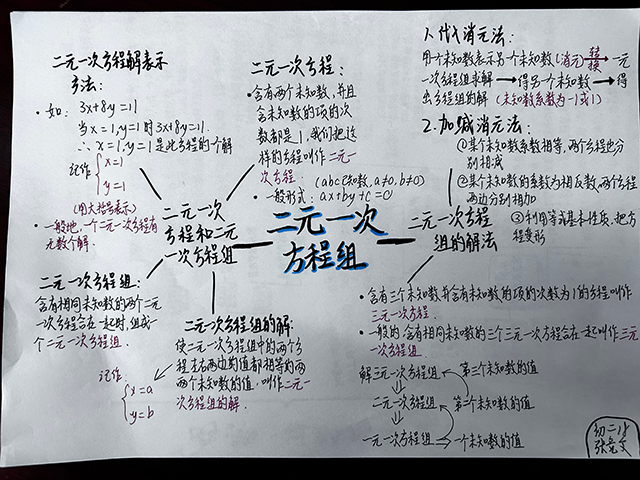 二元一次方程解表示
方法:
·如: 3x+8y=11
当x=1,y=1时3x+8y=11.
∴x=1,y=1是此方程的一个解
记作{x=1
y=1
(用大括号表示)
·一般地,一个二元一次方程有
无数个解.
二元一次方程:
·含有两个未知数,并且
含未知数的项的次
数都是1,我们把这
样的方程叫作二元一
次方程: (abc已知数,a≠0,b≠0)
·一般形式:ax+by+c=0
1.代入消元法:
用一个未知数表示另一个未知数(消元)转换→一元
一次方程组求解→得另一个未知数→得
出方程组的解(未知数系数为-1或1)
2.加减消元法:
①某个未知数系数相等,两个方程边分
别相减
②某个未知数的系数为相反数,两个方程
两边分别相加
③利用等式基本性质,把方
程变形
二元一次
方程和二元
一次方程组
二元一次
方程组
二元一次方程
组的解法
二元一次方程组:
含有相同未知数的两个二元
一次方程合在一起时,组成一
个二元一次方程组.
记作
{x=a
y=b
二元一次方程组的解:
使二元一次方程组中的两个方
程左右两边的值都相等的两
个未知数的值,叫作二元一
次方程组的解.
·含有三个未知数并含有未知数的项的次数为1的方程叫作
三元一次方程.
·一般的,含有相同未知数的三个三元一次方程合在一起叫作三元
一次方程组.
解三元一次方程组 第三个未知数的值
二元一次方程组 第二个未知数的值
一元一次方程组⇒一个未知数的值
初二18